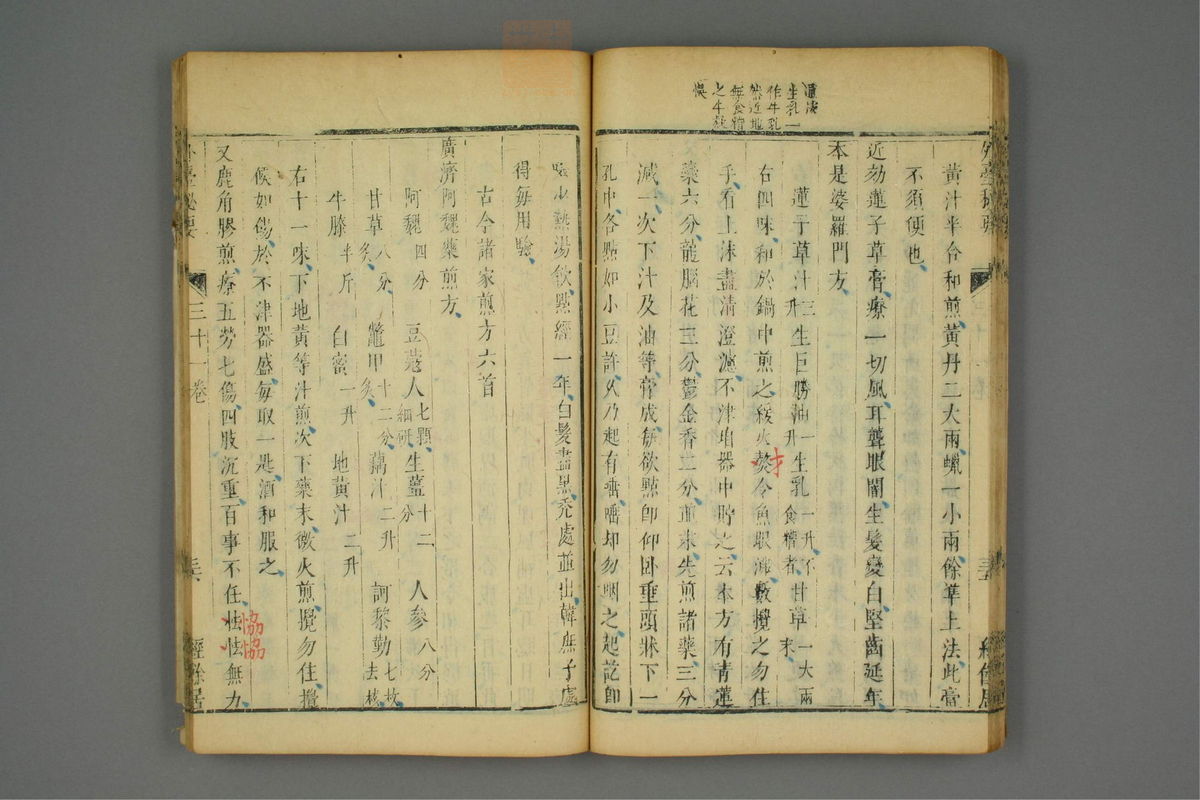 外臺秘要
黃汁半合和煎黃丹二大兩蠟一小兩餘準上法此膏
不須便也
近効蓮子草膏療一切風耳聾眼闇生髮變白堅齒延年
本是婆羅門方
蓮子草汁三升生巨勝油一升生乳一升不食糟者甘草一大兩末
右四味和於鍋中煎之緩火熬令魚眼沸數攪之勿住
手看上沫盡清澄濾不津瓷器中貯之云本方有青蓮
藥六分龍腦花三分鬱金香二分並末先煎諸藥三分
減一次下汁及油等膏成每欲點即仰臥垂頭牀下一
孔中各點如小豆許久乃起有唾唾却勿咽之起訖即
生乳一
作牛乳
然近地
無食糟
之牛
啖少熱湯飲點經一年白髮盡黑禿處並出韓庶子處
得每用驗
古今諸家煎方六首
廣濟阿魏藥煎方
阿魏四分 豆蔻人七顆細研 生薑十二分 人參八分
甘草八分炙 鼈甲十二分炙 藕汁二升 訶黎勒七枚去核
牛膝半斤 白蜜一升 地黃汁二升
右十一味下地黃等汁煎次下藥末微火煎攪勿住攪
候如餳於不津器盛每取一匙酒和服之
又鹿角膠煎療五勞七傷四肢沉重百事不任怯怯無力
恊恊
外臺秘要
三十一卷
經餘居